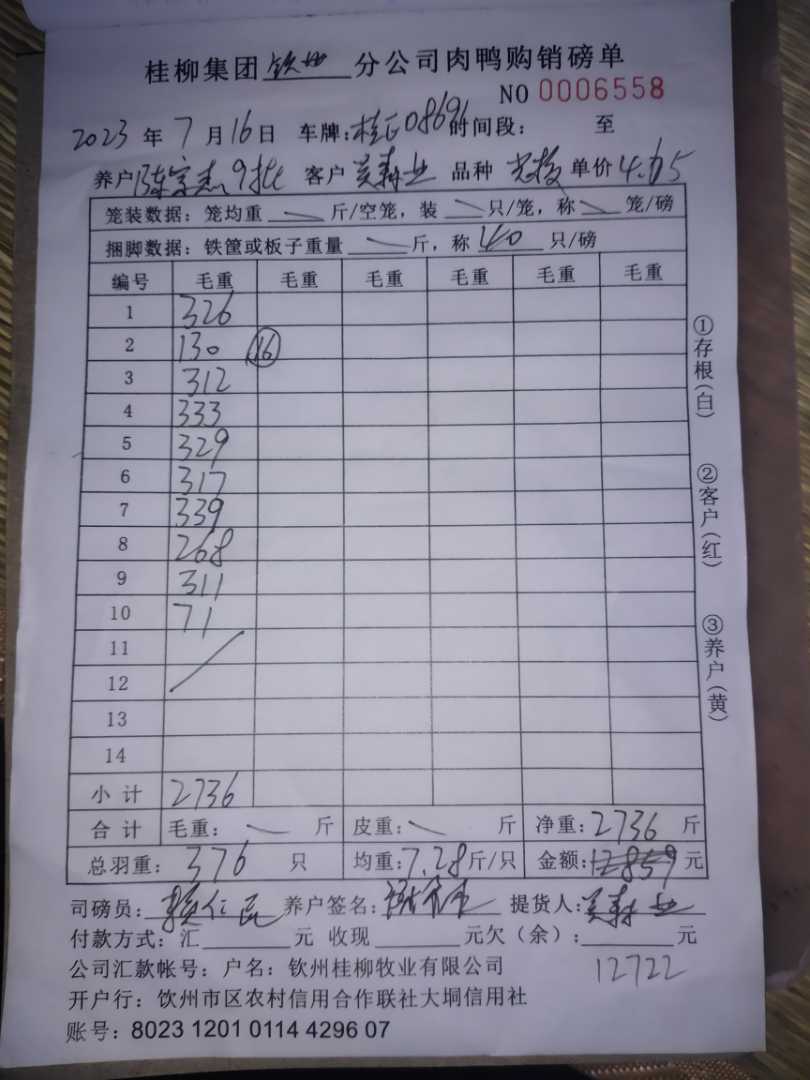 桂柳集团 钦州 分公司肉鸭购销磅单
NO 0006558
2023 年 7 月 16 日 车牌: 桂 08691 时间段: 至
养户 9批 客户 吴森业 品种 单价 4.65
笼装数据: 笼均重 斤/空笼, 装 只/笼, 称 笼/磅
捆脚数据: 铁筐或板子重量 斤, 称 40 只/磅
编号 毛重 毛重 毛重 毛重 毛重 毛重
1 326
2 130 16
3 312
4 333
5 329
6 317
7 339
8 268
9 311
10 71
11
12
13
14
小计 2736
合计 毛重: 斤 皮重: 斤 净重: 2736 斤
总羽重: 376 只 均重: 7.28 斤/只 金额: 12859 元
司磅员: 养户签名: 提货人: 吴森业
付款方式: 汇 元 收现 元欠(余): 元
公司汇款帐号: 户名: 钦州桂柳牧业有限公司 12722
开户行: 钦州市区农村信用合作联社大垌信用社
账号: 8023 1201 0114 4296 07
①存根(白)
②客户(红)
③养户(黄)